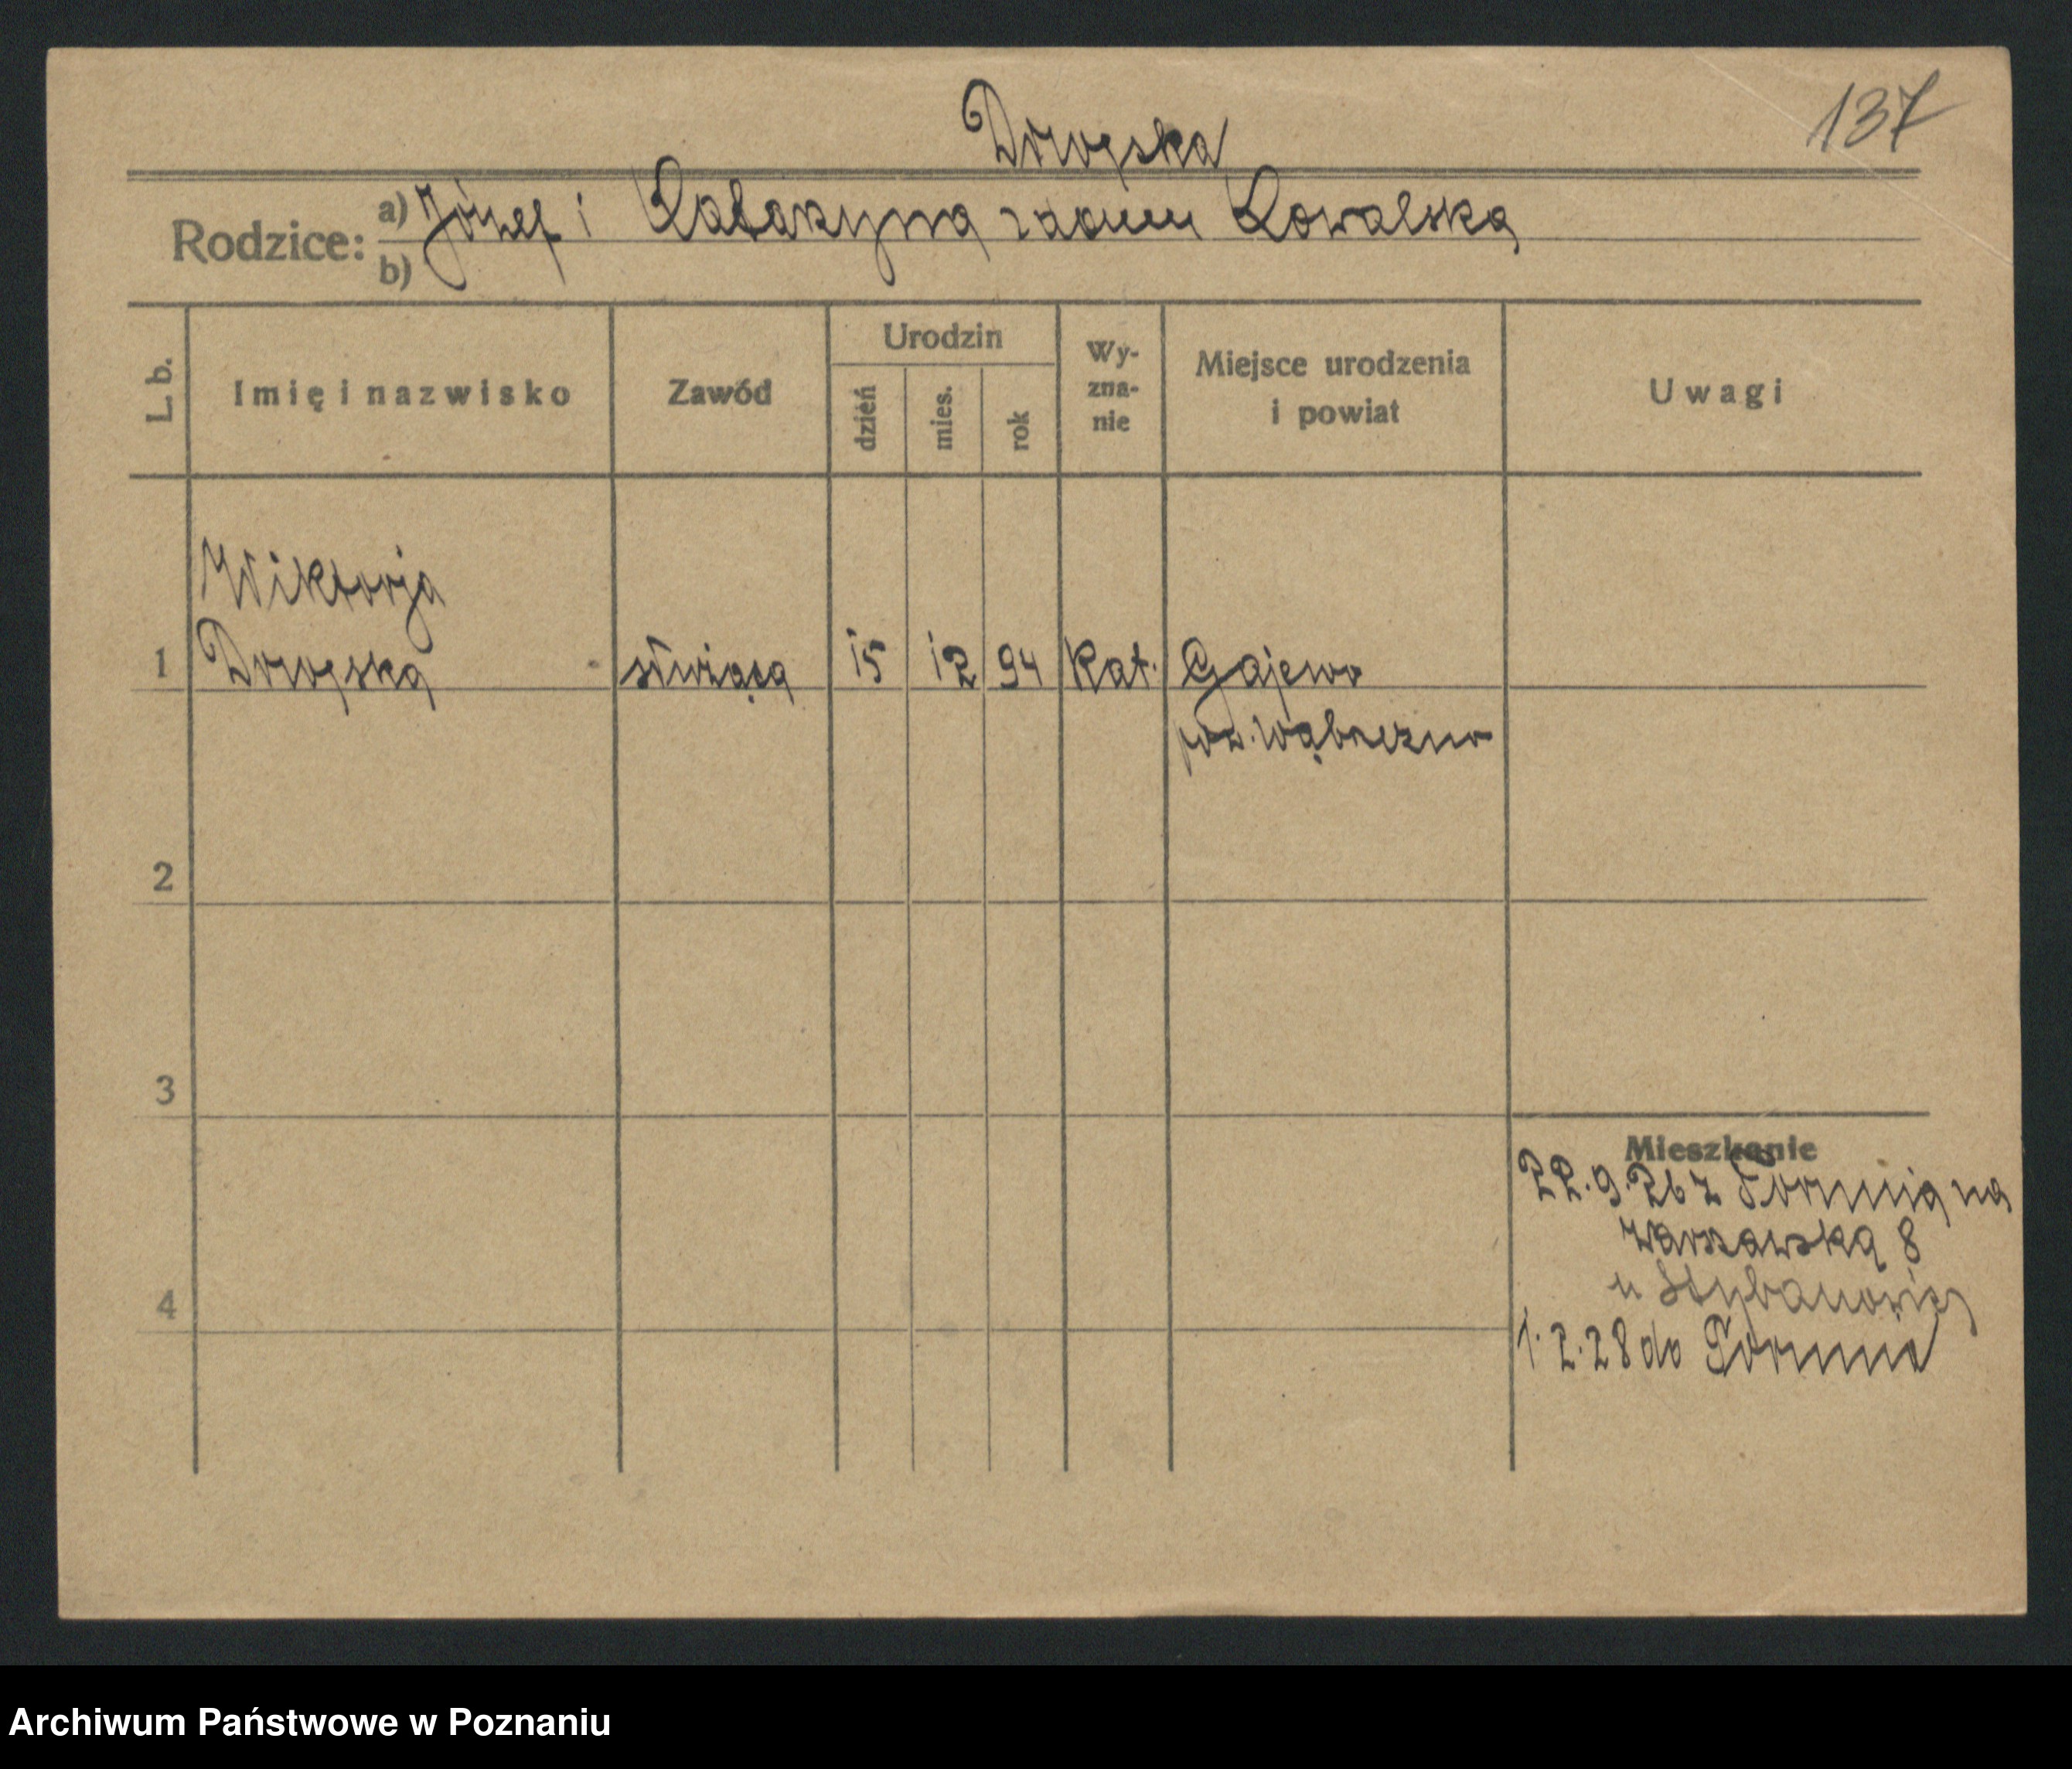 137
Drwęska
Rodzice: a) Józef i Katarzyna z domu Kowalska
b)
L. b. Imię i nazwisko Zawód Urodzin dzień mies. rok Wyznanie Miejsce urodzenia i powiat Uwagi
Wiktorja
1 Drwęska służąca 15 12 94 Kat. Gajewo
pow. Wąbrzeźno
2
3
Mieszkanie
22.9.26 z Torunia na
Warszawska 8
u
4
1.2.28 do Torunia
Archiwum Państwowe w Poznaniu